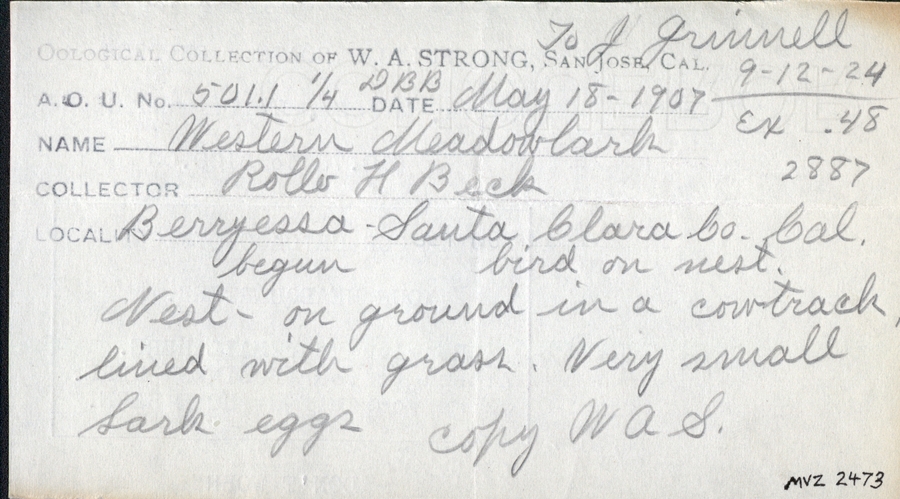 To J Grinnell
OOLOGICAL COLLECTION OF W. A. STRONG, SAN JOSE, CAL.
9-12-24
A. O. U. No. 501.1 1/4 DBB DATE May 18-1907
Ex .48
NAME Western Meadowlark
2887
COLLECTOR Rollo H Beck
LOCALITY Berryessa - Santa Clara Co. Cal.
begun bird on nest.
Nest - on ground in a cowtrack,
lined with grass. Very small
lark eggs copy W A S.
MVZ 2473